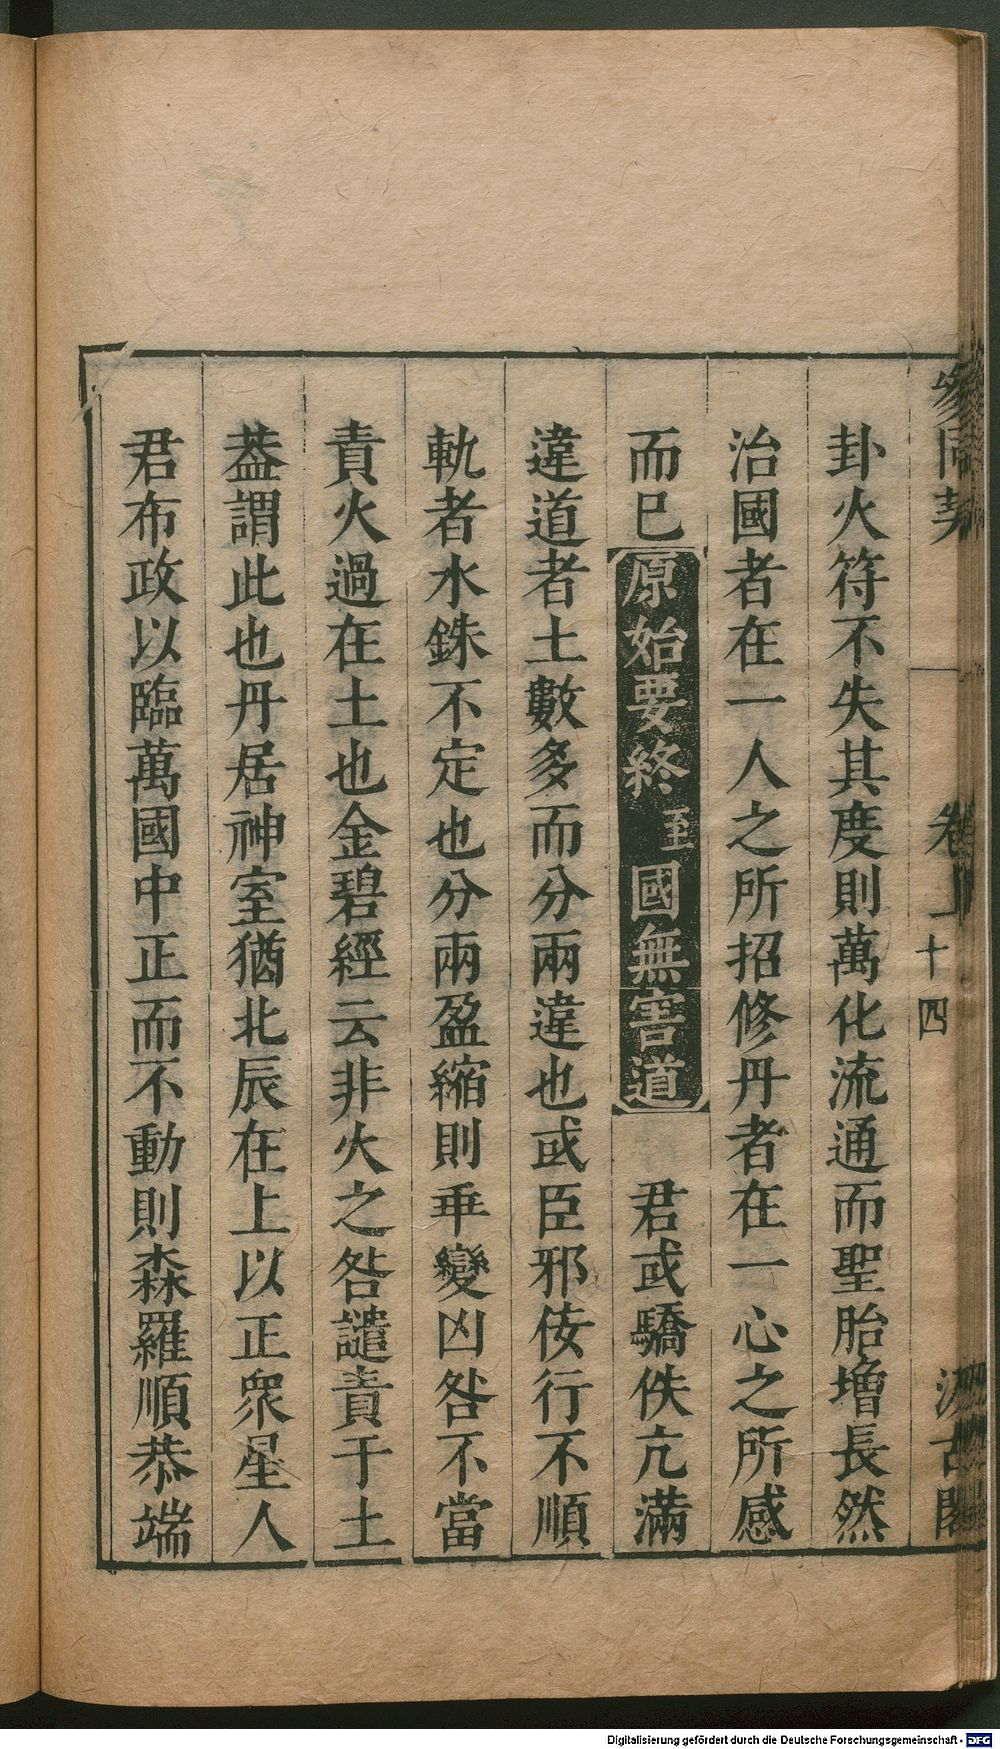 參同契 卷一 十四 汲古閣
卦火符不失其度則萬化流通而聖胎增長然
治國者在一人之所招修丹者在一心之所感
而巳原始要終至國無害道 君或驕佚亢滿
違道者土數多而分兩違也或臣邪佞行不順
軌者水銖不定也分兩盈縮則乖變凶咎不當
責火過在土也金碧經云非火之咎譴責于土
葢謂此也丹居神室猶北辰在上以正衆星人
君布政以臨萬國中正而不動則森羅順恭端
Digitalisierung gefördert durch die Deutsche Forschungsgemeinschaft - DFG